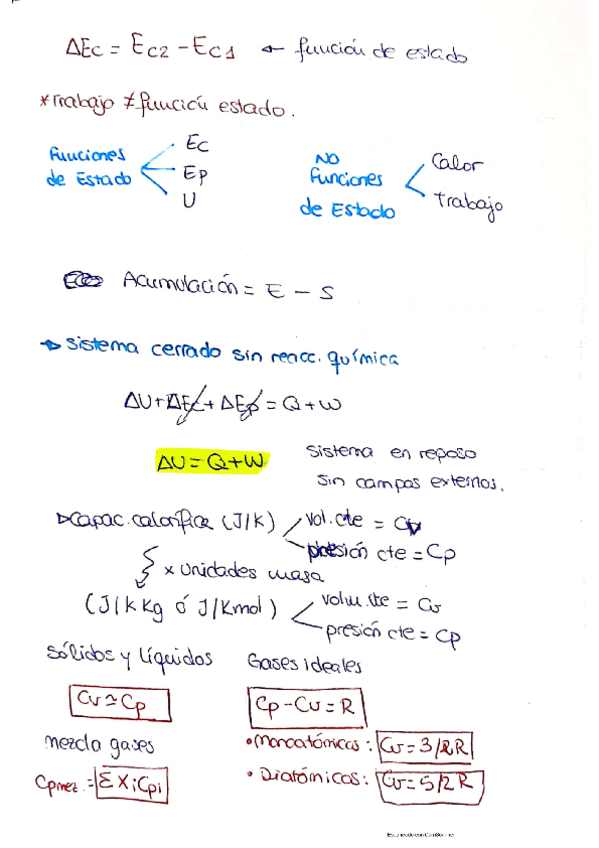 ΔEc = Ec2 - Ec1 ← función de estado
*Trabajo ≠ función estado.
Funciones de Estado
Ec
Ep
U
NO Funciones de Estado
Calor
Trabajo
Acumulación = E - S
→ Sistema cerrado sin reacc. química
ΔU + ΔEc + ΔEp = Q + W
ΔU = Q + W
Sistema en reposo
sin campos externos.
▷ Capac. calorífica (J/K)
vol. cte = Cv
presión cte = Cp
x unidades masa
(J/k Kg ó J/Kmol)
volu. cte = Cv
presión cte = Cp
Sólidos y líquidos
Cv ≃ Cp
Gases ideales
Cp - Cv = R
mezcla gases
Cpmez. = Σ Xi Cpi
• Monoatómicos: Cv = 3/2 R
• Diatómicos: Cv = 5/2 R
Escaneado con CamScanner